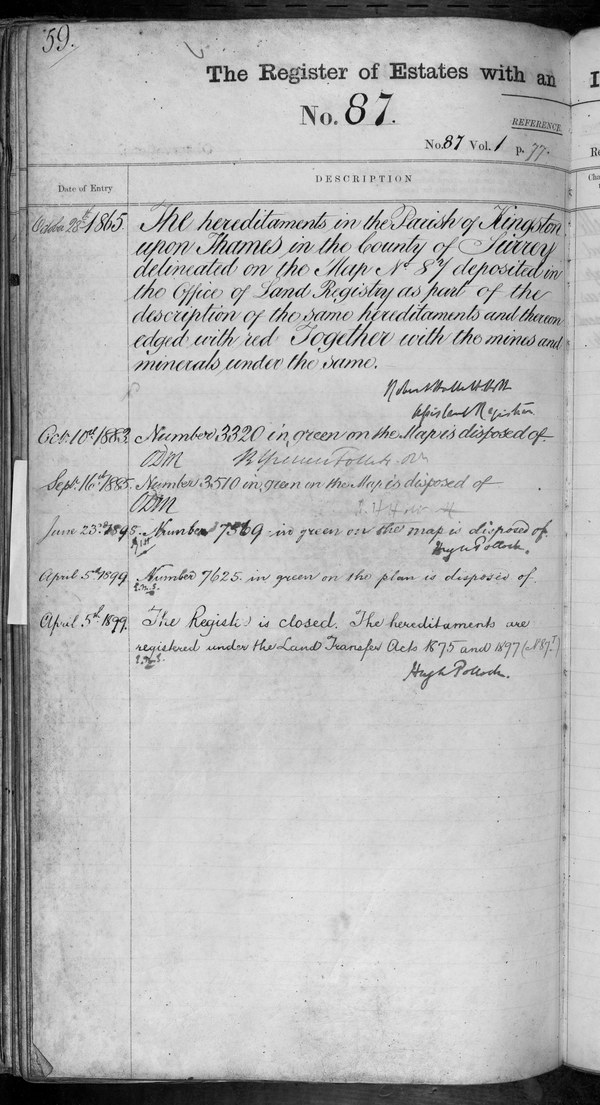 59.
The Register of Estates with an
No. 87.
REFERENCE
No. 87 Vol. 1 p. 77.
Date of Entry
DESCRIPTION
October 28th 1865.
The hereditaments in the Parish of Kingston
upon Thames in the County of Surrey
delineated on the Map No 87 deposited in
the Office of Land Registry as part of the
description of the same hereditaments and thereon
edged with red Together with the mines and
minerals under the same.
Assistant Registrar
Octr 10th 1883. Number 3320 in green on the Map is disposed of
ODM
Septr 16th 1885. Number 3510 in green on the Map is disposed of
ODM
June 23rd 1895. Number 7369 in green on the map is disposed of
Hugh Pollock.
April 5th 1899. Number 7625 in green on the plan is disposed of.
April 5th 1899. The Register is closed. The hereditaments are
registered under the Land Transfer Acts 1875 and 1897
Hugh Pollock.